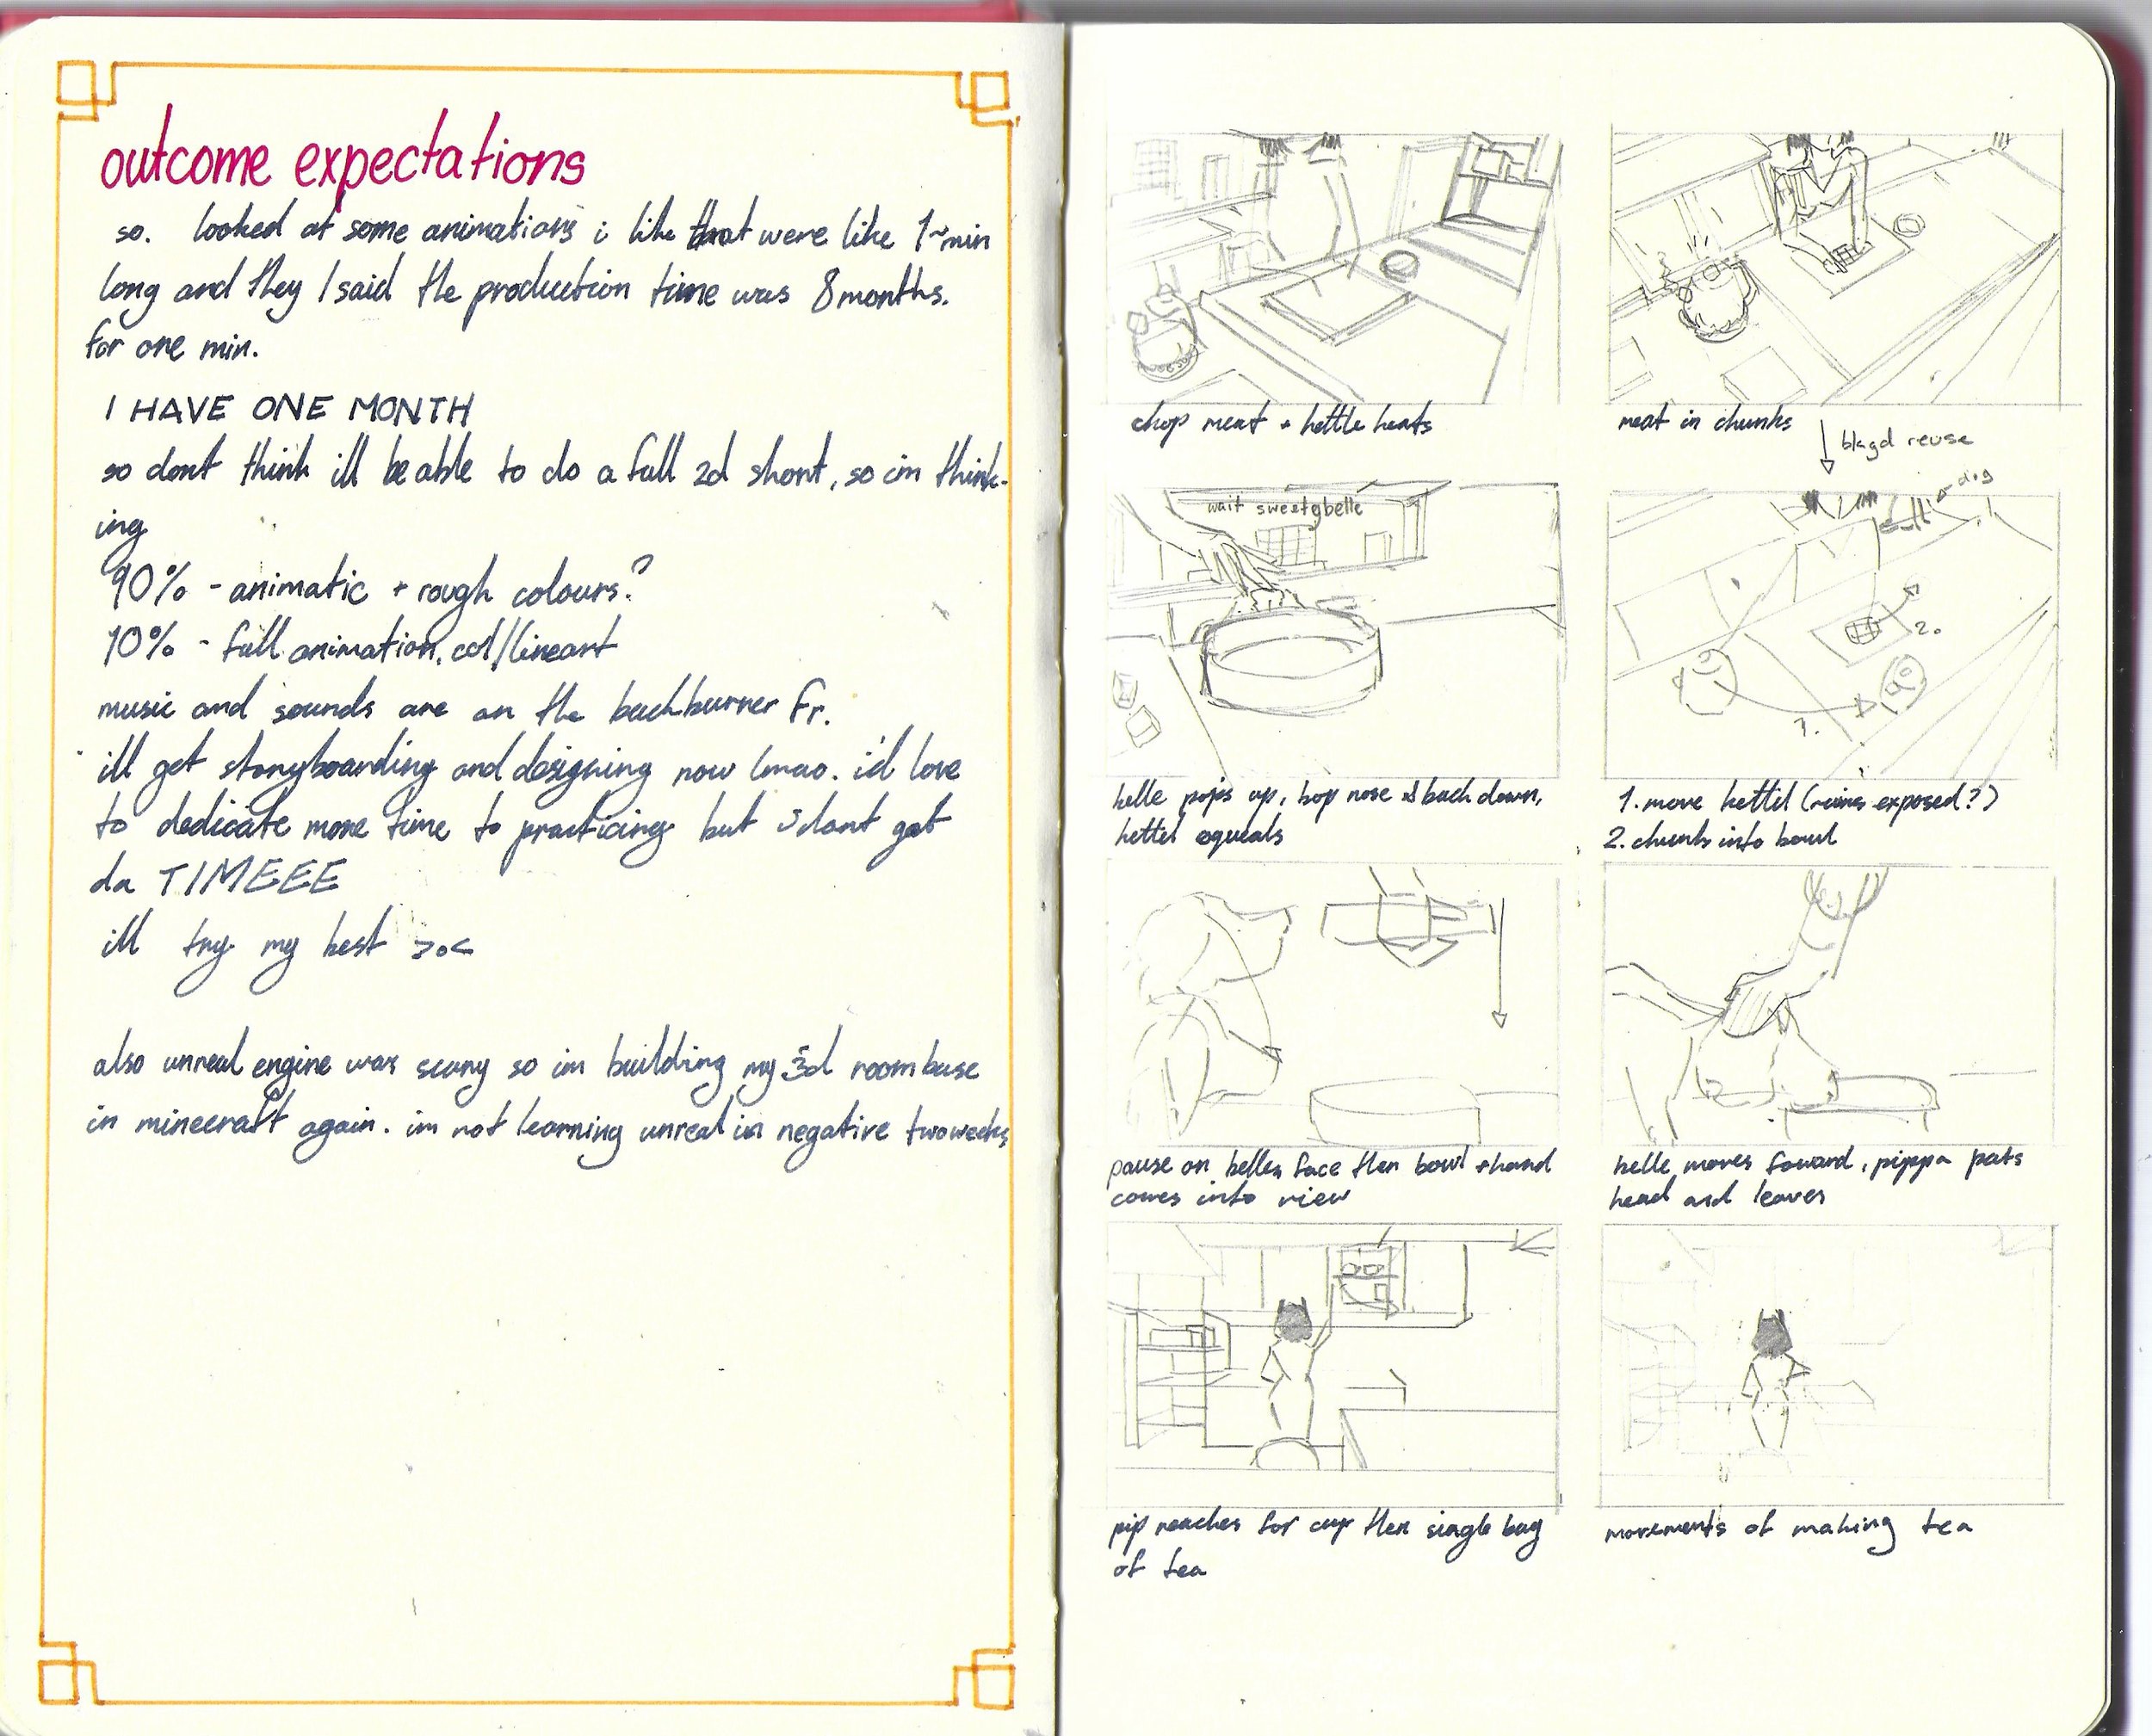 outcome expectations
so. looked at some animations i like that were like 1~min
long and they / said the production time was 8 months.
for one min.
I HAVE ONE MONTH
so dont think ill be able to do a full 2d short, so im think-
ing
90% - animatic + rough colours?
10% - full animation, col/lineart
music and sounds are on the backburner fr.
ill get storyboarding and designing now lmao. i'd love
to dedicate more time to practicing but i dont got
da TIMEEE
ill try my best >o<
also unreal engine was scary so im building my 3d room base
in minecraft again. im not learning unreal in negative two weeks
chop meat + kettle heats
meat in chunks
bkgd reuse
wait sweetybelle
belle pops up, bop nose & back down,
kettel squeals
dog
2.
1.
1. move kettel (ruins exposed?)
2. chunks into bowl
pause on belles face then bowl + hand
comes into view
belle moves foward, pippa pats
head and leaves
pip reaches for cup then single bag
of tea
movements of making tea